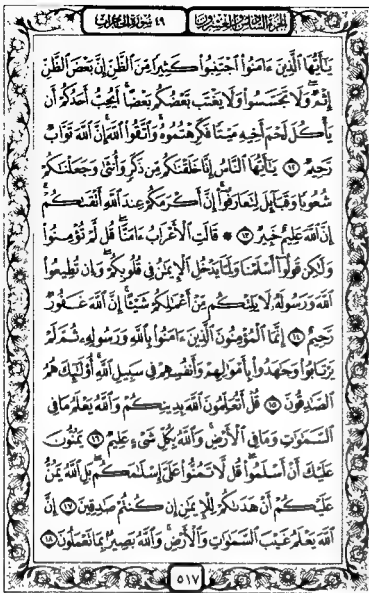 الجزء السادس والعشرون ٤٩ سورة الحجرات
يَـٰٓأَيُّهَا ٱلَّذِينَ ءَامَنُوا۟ ٱجْتَنِبُوا۟ كَثِيرًا مِّنَ ٱلظَّنِّ إِنَّ بَعْضَ ٱلظَّنِّ
إِثْمٌ وَلَا تَجَسَّسُوا۟ وَلَا يَغْتَب بَّعْضُكُم بَعْضًا أَيُحِبُّ أَحَدُكُمْ أَن
يَأْكُلَ لَحْمَ أَخِيهِ مَيْتًا فَكَرِهْتُمُوهُ وَٱتَّقُوا۟ ٱللَّهَ إِنَّ ٱللَّهَ تَوَّابٌ
رَّحِيمٌ ١٢ يَـٰٓأَيُّهَا ٱلنَّاسُ إِنَّا خَلَقْنَـٰكُم مِّن ذَكَرٍ وَأُنثَىٰ وَجَعَلْنَـٰكُمْ
شُعُوبًا وَقَبَآئِلَ لِتَعَارَفُوٓا۟ إِنَّ أَكْرَمَكُمْ عِندَ ٱللَّهِ أَتْقَىٰكُمْ
إِنَّ ٱللَّهَ عَلِيمٌ خَبِيرٌ ١٣ ۞ قَالَتِ ٱلْأَعْرَابُ ءَامَنَّا قُل لَّمْ تُؤْمِنُوا۟
وَلَـٰكِن قُولُوٓا۟ أَسْلَمْنَا وَلَمَّا يَدْخُلِ ٱلْإِيمَـٰنُ فِى قُلُوبِكُمْ وَإِن تُطِيعُوا۟
ٱللَّهَ وَرَسُولَهُۥ لَا يَلِتْكُم مِّنْ أَعْمَـٰلِكُمْ شَيْـًٔا إِنَّ ٱللَّهَ غَفُورٌ
رَّحِيمٌ ١٤ إِنَّمَا ٱلْمُؤْمِنُونَ ٱلَّذِينَ ءَامَنُوا۟ بِٱللَّهِ وَرَسُولِهِۦ ثُمَّ لَمْ
يَرْتَابُوا۟ وَجَـٰهَدُوا۟ بِأَمْوَٰلِهِمْ وَأَنفُسِهِمْ فِى سَبِيلِ ٱللَّهِ أُو۟لَـٰٓئِكَ هُمُ
ٱلصَّـٰدِقُونَ ١٥ قُلْ أَتُعَلِّمُونَ ٱللَّهَ بِدِينِكُمْ وَٱللَّهُ يَعْلَمُ مَا فِى
ٱلسَّمَـٰوَٰتِ وَمَا فِى ٱلْأَرْضِ وَٱللَّهُ بِكُلِّ شَىْءٍ عَلِيمٌ ١٦ يَمُنُّونَ
عَلَيْكَ أَنْ أَسْلَمُوا۟ قُل لَّا تَمُنُّوا۟ عَلَىَّ إِسْلَـٰمَكُم بَلِ ٱللَّهُ يَمُنُّ
عَلَيْكُمْ أَنْ هَدَىٰكُمْ لِلْإِيمَـٰنِ إِن كُنتُمْ صَـٰدِقِينَ ١٧ إِنَّ
ٱللَّهَ يَعْلَمُ غَيْبَ ٱلسَّمَـٰوَٰتِ وَٱلْأَرْضِ وَٱللَّهُ بَصِيرٌۢ بِمَا تَعْمَلُونَ ١٨
٥١٧